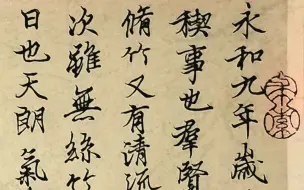 永和九年歲
禊事也羣賢
脩竹又有清流
次雖無絲竹
日也天朗氣